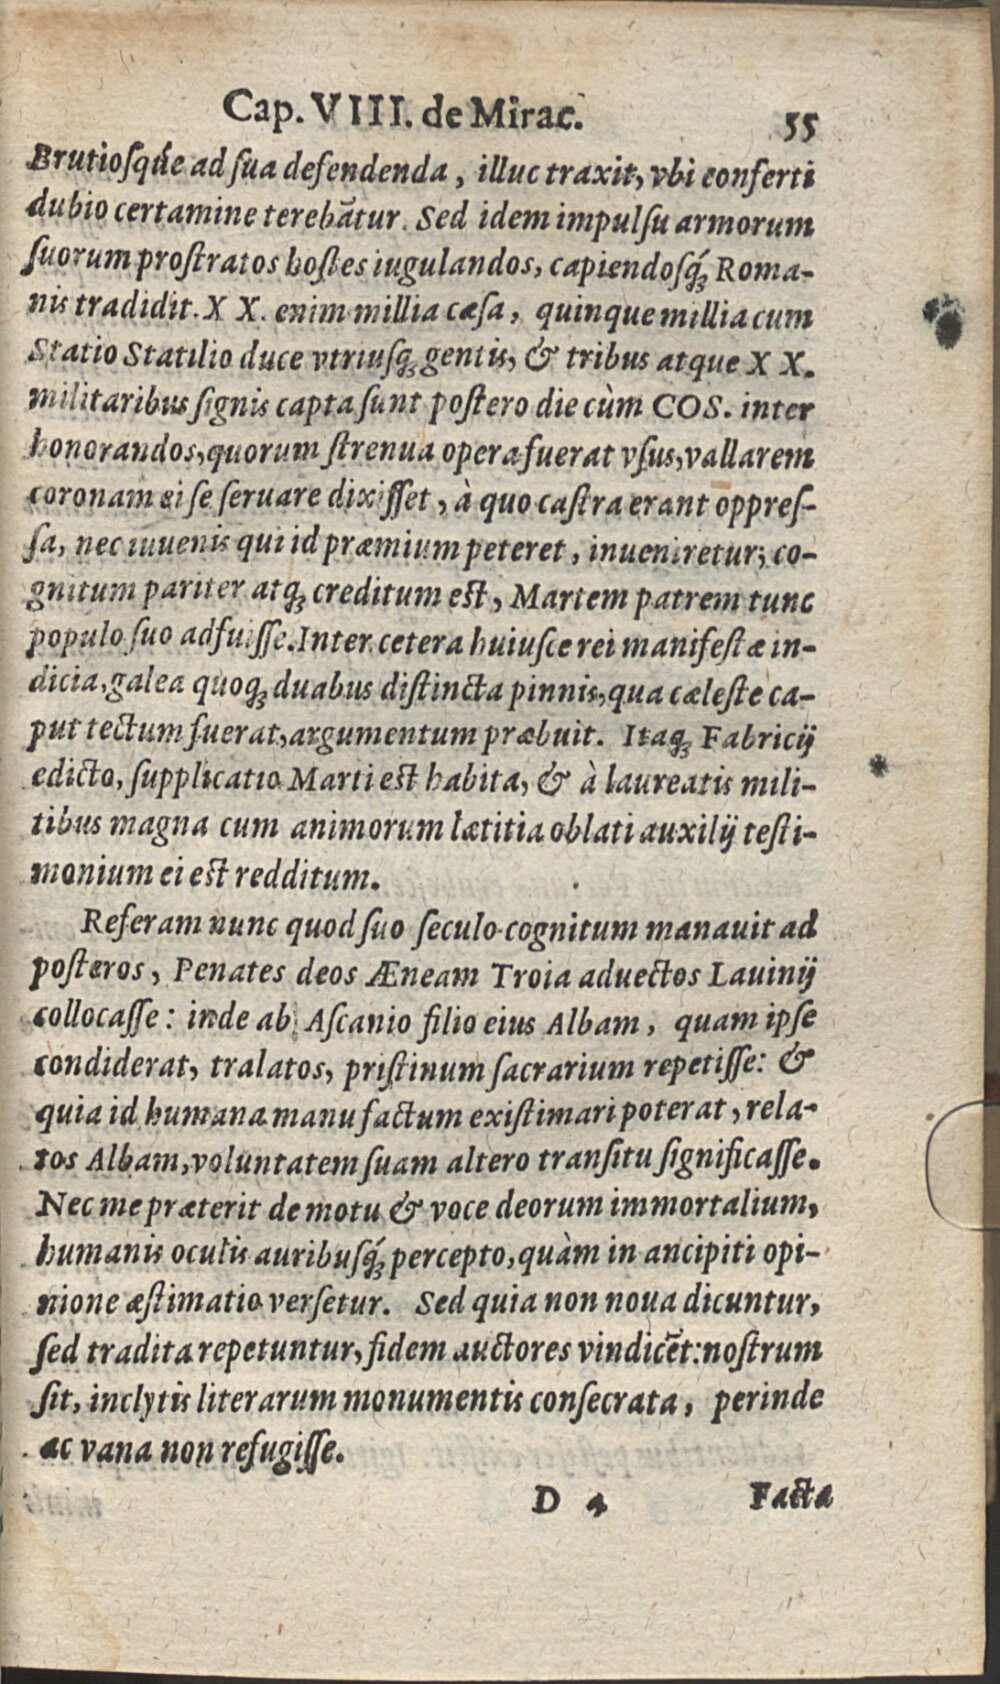 Cap. VIII. de Mirac. 55
Brutiosq́ue ad sua defendenda, illuc traxit, vbi conferti
dubio certamine terebātur. Sed idem impulsu armorum
suorum prostratos hostes iugulandos, capiendosq́ꝫ Roma-
nis tradidit. X X. enim millia cæsa, quinque millia cum
Statio Statilio duce vtriusqꝫ gentis, & tribus atque X X.
militaribus signis capta sunt postero die cùm COS. inter
honorandos, quorum strenua opera fuerat vsus, vallarem
coronam ei se seruare dixisset, à quo castra erant oppres-
sa, nec iuuenis qui id præmium peteret, inueniretur; co-
gnitum pariter atqꝫ creditum est, Martem patrem tunc
populo suo adfuisse. Inter cetera huiusce rei manifestæ in-
dicia, galea quoqꝫ duabus distincta pinnis, qua cæleste ca-
put tectum fuerat, argumentum præbuit. Itaqꝫ Fabricij
edicto, supplicatio Marti est habita, & à laureatis mili-
tibus magna cum animorum lætitia oblati auxilij testi-
monium ei est redditum.
Referam nunc quod suo seculo cognitum manauit ad
posteros, Penates deos Æneam Troia aduectos Lauinij
collocasse: inde ab Ascanio filio eius Albam, quam ipse
condiderat, tralatos, pristinum sacrarium repetisse: &
quia id humana manu factum existimari poterat, rela-
tos Albam, voluntatem suam altero transitu significasse.
Nec me præterit de motu & voce deorum immortalium,
humanis oculis auribusq́ꝫ percepto, quàm in ancipiti opi-
nione æstimatio versetur. Sed quia non noua dicuntur,
sed tradita repetuntur, fidem auctores vindicēt: nostrum
sit, inclytis literarum monumentis consecrata, perinde
ac vana non refugisse.
D 4 Facta